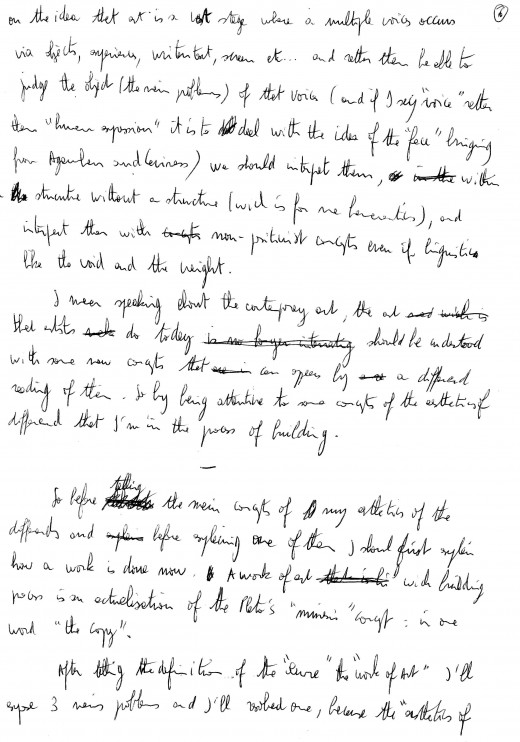 on the idea that art is a vast stage where a multiple voices occurs
via objects, experiences, written text, screen etc... and rather then be able to
judge the object (the main problems) of that voices (and if I say "voice" rather
then "human expression" it is to deal with the idea of the "face" bringing
from Agamben and Levinass) we should interpret them, within
structure without a structure (wich is for me hermeneutics), and
interpret them with non-positivist concepts even if linguistics
like the void and the weight.
I mean speaking about the contemporary art, the art
that artists do today should be understood
with some new concepts that can appears by a differend
reading of them. So by being attentive to some concepts of the aesthetics of
differend that I'm in the process of building.
—
So before telling the main concepts of my aesthetics of the
differends and before explaining one of them I shoul first explain
how a work is done now. A work of art wich building
process is an actualisation of the Plato's "mimesis" concept : in one
word "the copy".
After telling the definition of the "œuvre" the "work of Art" I'll
expose 3 mains problems and I'll resolved one, because the "aesthetics of